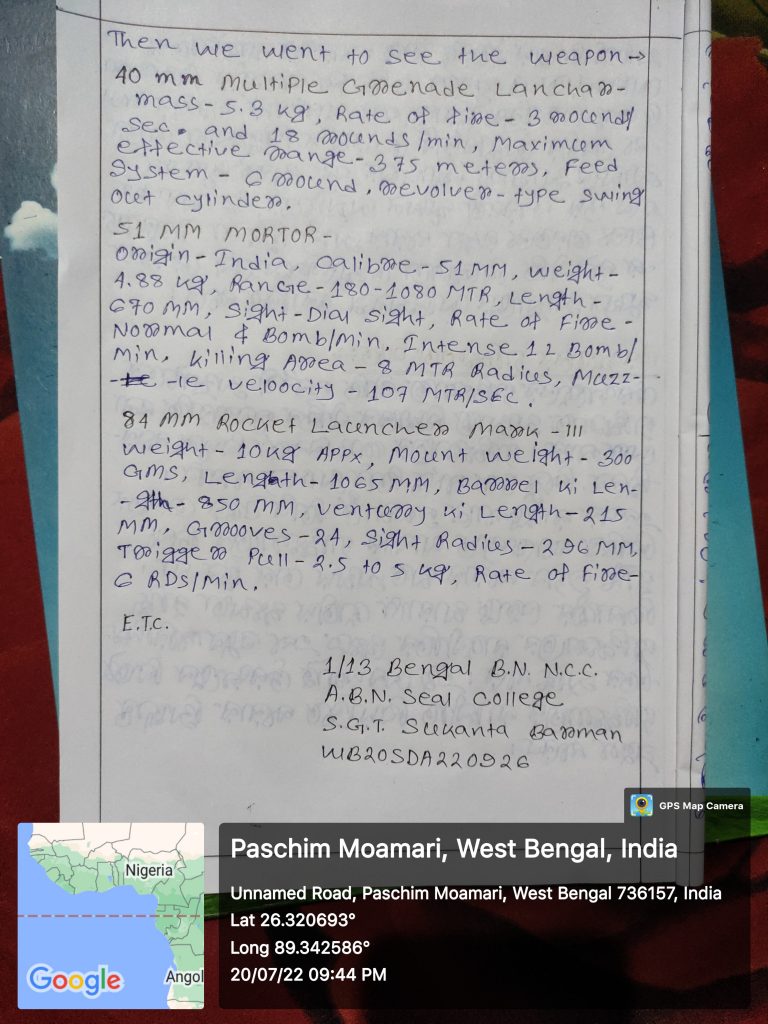 Then we went to see the weapon→
40 mm Multiple Grenade Lanchar-
mass - 5.3 kg, Rate of fire - 3 rounds/
Sec. and 18 rounds/min, Maximum
effective range - 375 meters, Feed
System - 6 round, revolver-type swing
out cylinder.
51 MM MORTOR-
Origin - India, Calibre - 51 MM, weight-
4.88 kg, Range - 180-1080 MTR, Length -
670 MM, Sight - Dial sight, Rate of Fire -
Normal & Bomb/Min, Intense 12 Bomb/
Min, killing Area - 8 MTR Radius, Muzz-
-le veloocity - 107 MTR/SEC.
84 MM Rocket Launcher Mark - III
Weight - 10kg APPx, Mount weight - 300
GMS, Length - 1065 MM, Barrel ki Len-
-gth - 850 MM, Ventury ki Length - 215
MM, Grooves - 24, Sight Radius - 296 MM,
Trigger Pull - 2.5 to 5 kg, Rate of Fire-
6 RDS/Min.
E.T.C.
1/13 Bengal B.N. N.C.C.
A.B.N. Seal College
S.G.T. Sukanta Barman
WB20SDA220926
GPS Map Camera
Nigeria
Angol
Google
Paschim Moamari, West Bengal, India
Unnamed Road, Paschim Moamari, West Bengal 736157, India
Lat 26.320693°
Long 89.342586°
20/07/22 09:44 PM